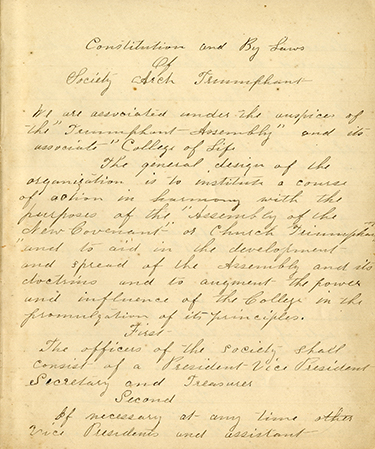 Constitution and By Laws
Of
Society Arch Triumphant
We are associated under the auspices of
the "Triumphant Assembly" and its
associate "College of Life
The general design of the
organization is to institute a course
of action in harmony with the
purposes of the "Assembly of the
New Covenant" or Church Triumphant
and to aid in the development
and spread of the Assembly and its
doctrines and to augment the power
and influence of the College in the
promulgation of its principles.
First
The officers of the society shall
consist of a President Vice President
Secretary and Treasurer
Second
If necessary at any time other
Vice Presidents and assistant